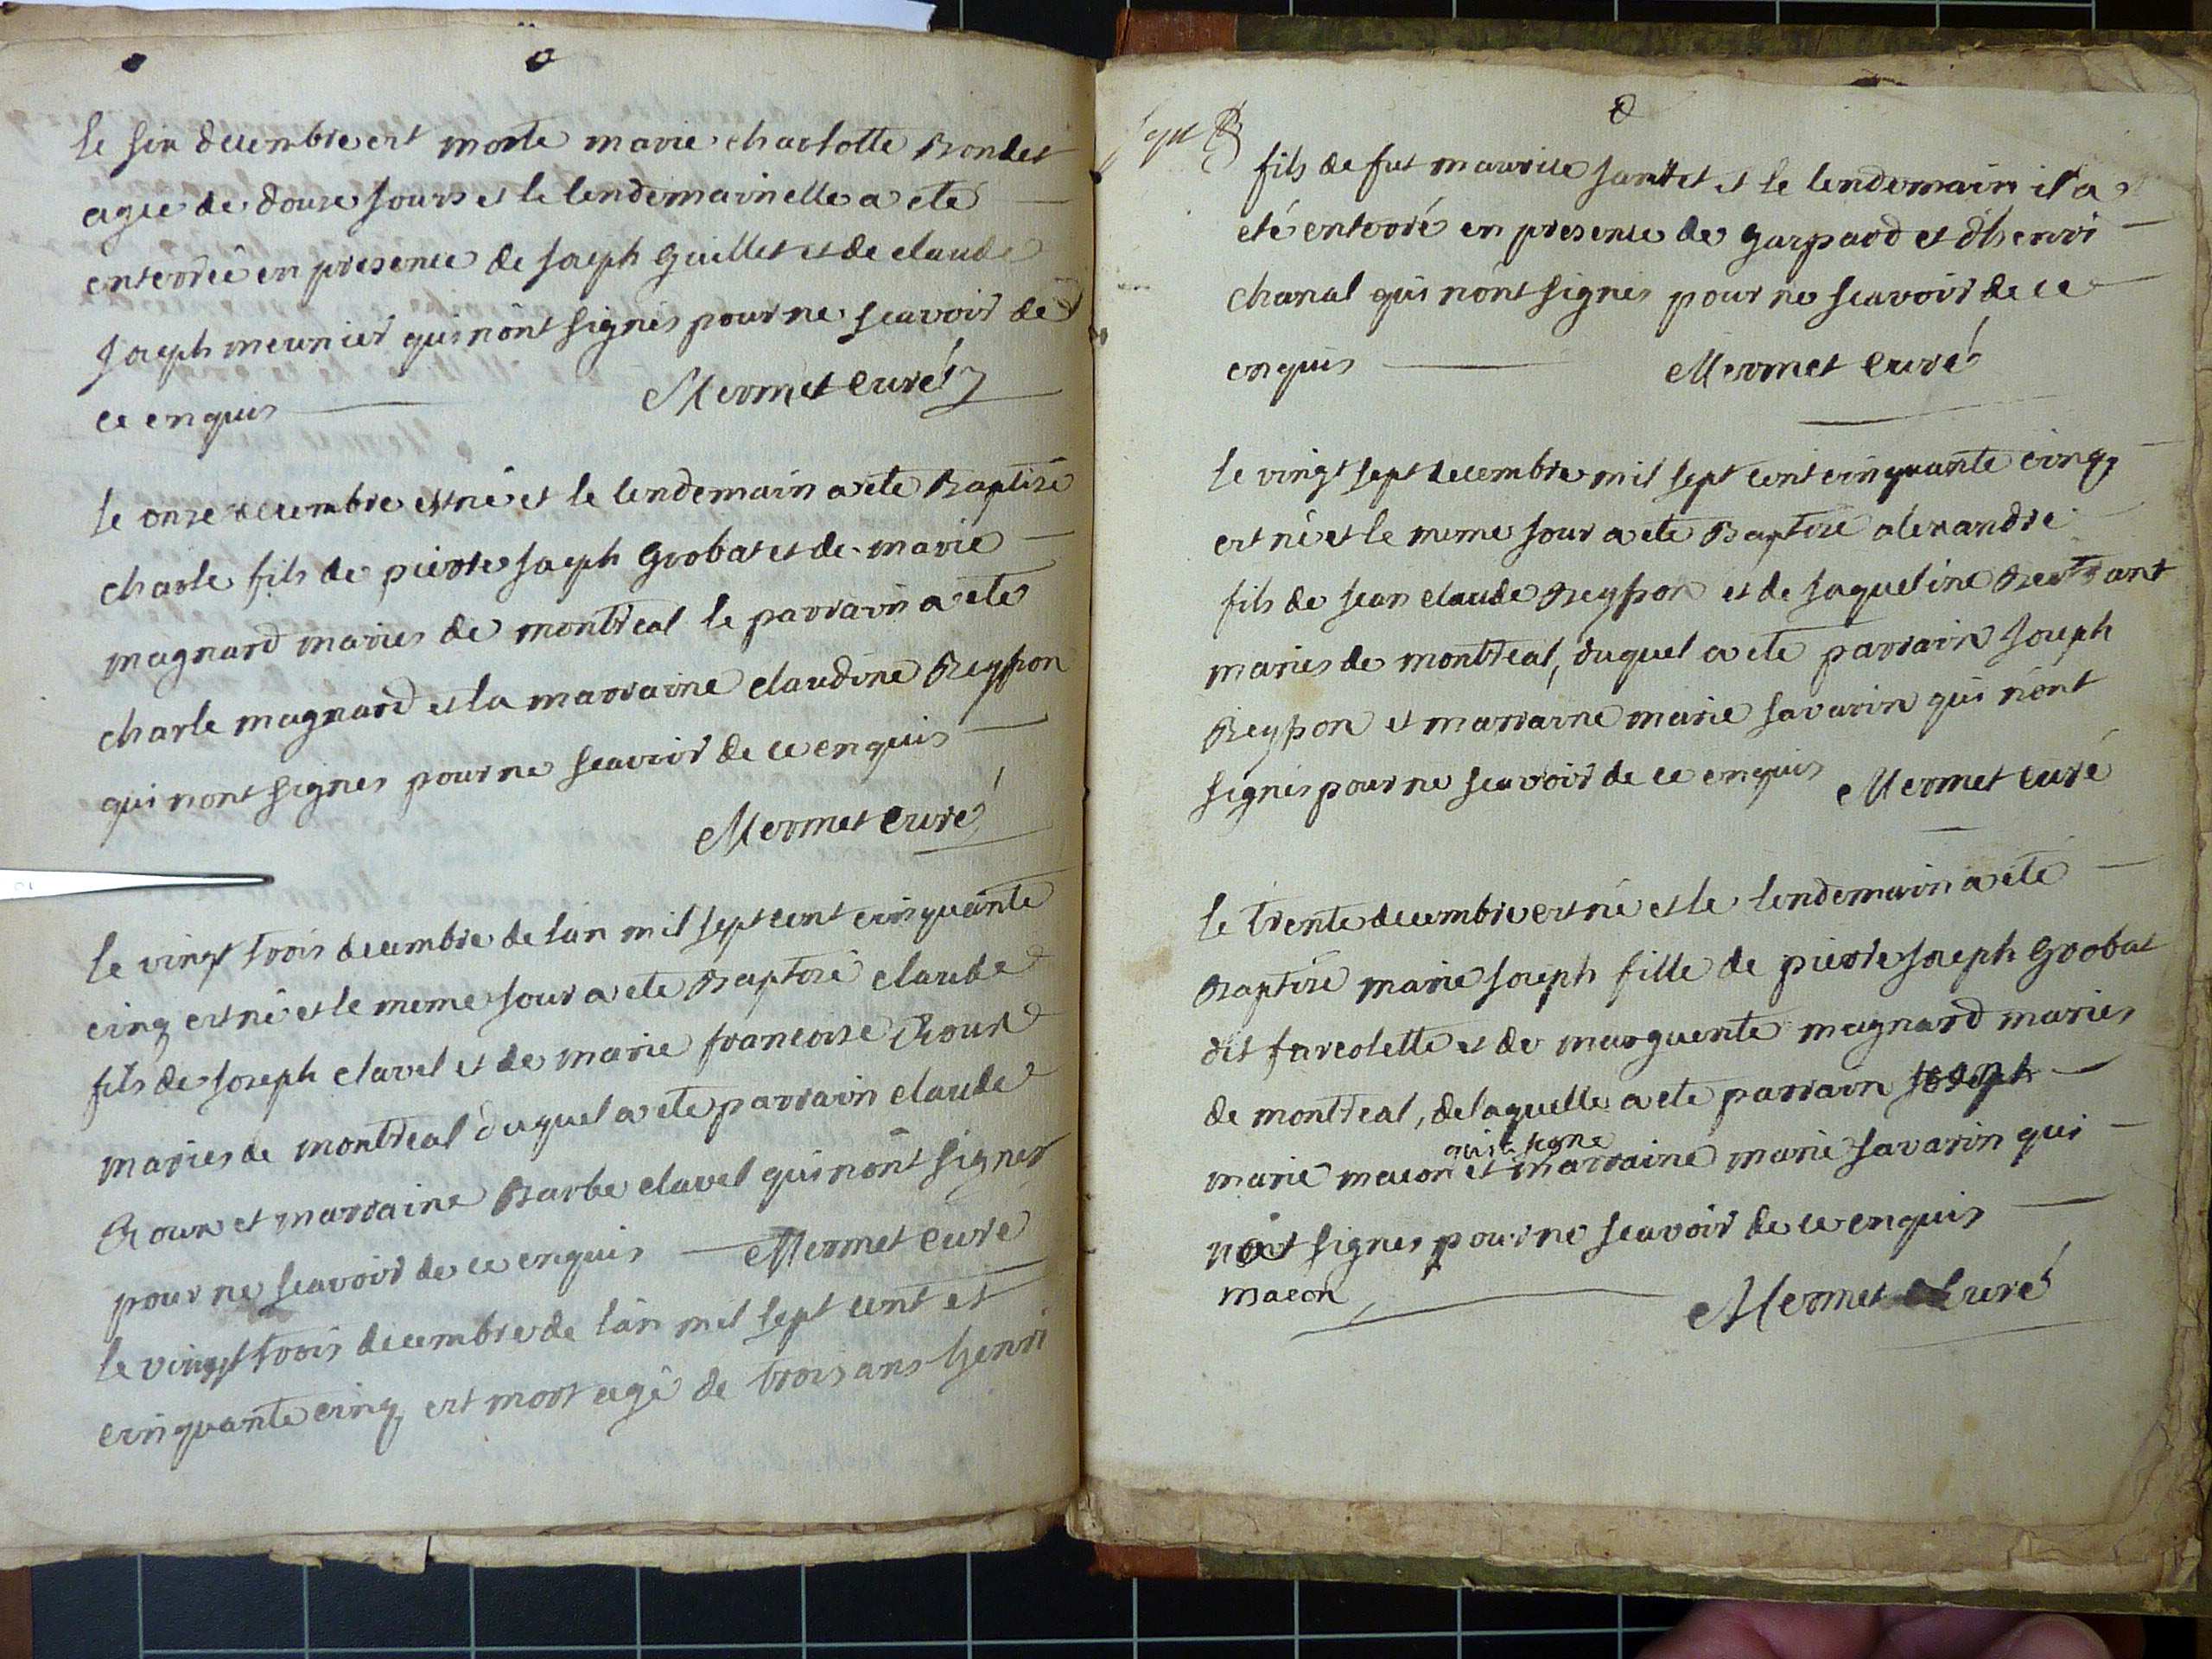 le six decembre est morte marie charlotte Bondet
agée de douze jours et le lendemain elle a ete
enterrée en presence de joseph Guillet et de claude
joseph meunier qui nont signés pour ne scavoir de
ce enquis Mermet curé
le onze decembre est né et le lendemain a ete Baptisé
charle fils de pierre joseph Grobat et de marie
magnard mariés de montreal le parrain a ete
charle magnard et la marraine claudine Reysson
qui nont signes pour ne scavoir de ce enquis
Mermet curé
le vingt trois decembre de lan mil sept cent cinquante
cinq est né et le meme jour a ete Baptisé claude
fils de joseph clavel et de marie francoise Roux
mariés de montreal duquel a ete parrain claude
Roux et marraine Barbe clavel qui nont signes
pour ne scavoir de ce enquis Mermet curé
le vingt trois decembre de lan mil sept cent et
cinquante cinq est mort agé de trois ans henri
fils de fut maurice et le lendemain il a
eté enterré en presence de gaspard et dhenri
chanal qui nont signés pour ne scavoir de ce
enquis Mermet curé
le vingt sept decembre mil sept cent cinquante cinq
est né et le meme jour a ete Baptisé alexandre
fils de jean claude Reysson et de jaqueline Bertrant
mariés de montreal, duquel a ete parrain joseph
Reysson et marraine marie savarin qui nont
signés pour ne scavoir de ce enquis Mermet curé
le trente decembre est né et le lendemain a ete
Baptisé marie joseph fille de pierre joseph Grobat
dit farcolette et de marguerite magnard mariés
de montreal, de laquelle a ete parrain joseph
qui a signe
marie macon et marraine marie savarin qui
nont signes pour ne scavoir de ce enquis
macon Mermet Curé